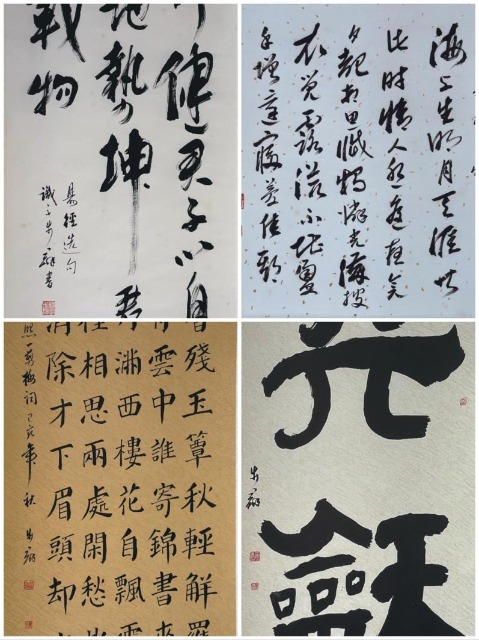 健君子以自
地勢坤君
載物
易經句
海上生明月天涯共
此時情人怨遙夜竟
夕起相思滅燭憐光滿披
衣覺露滋不堪盈
手贈還寢夢佳期
香殘玉簟秋輕解羅
雲中誰寄錦書來
滿西樓花自飄零
種相思兩處閑愁
消除才下眉頭却
照一剪梅詞己亥年秋
龢